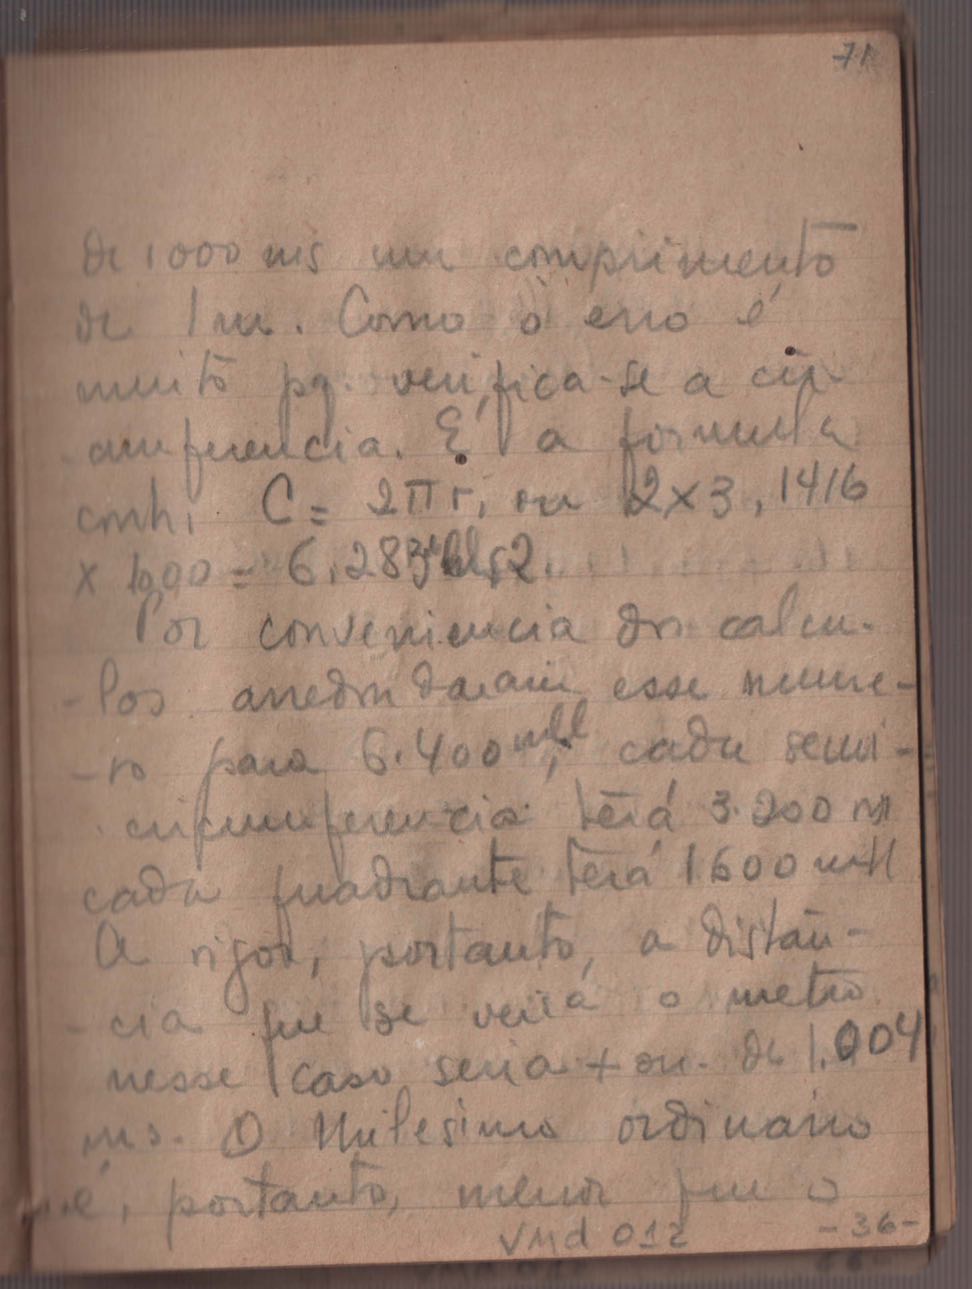 71
de 1000 ms um comprimento
de 1 m. Como o erro é
muito pq. verifica-se a cir-
cumferencia. É a formula
conh. C = 2πr, ou 2x3,1416
x 1000 = 6.283,2.
Por conveniencia dos calcu-
-los arredondaram esse nume-
-ro para 6.400 mil, cada semi-
circumferencia terá 3.200 m
cada quadrante terá 1600 mil
A rigor, portanto, a distan-
-cia que se verá o metro
nesse caso seria + ou - de 1.004
ms. O Milesimo ordinario
é, portanto, menor que o
VMd 012 -36-